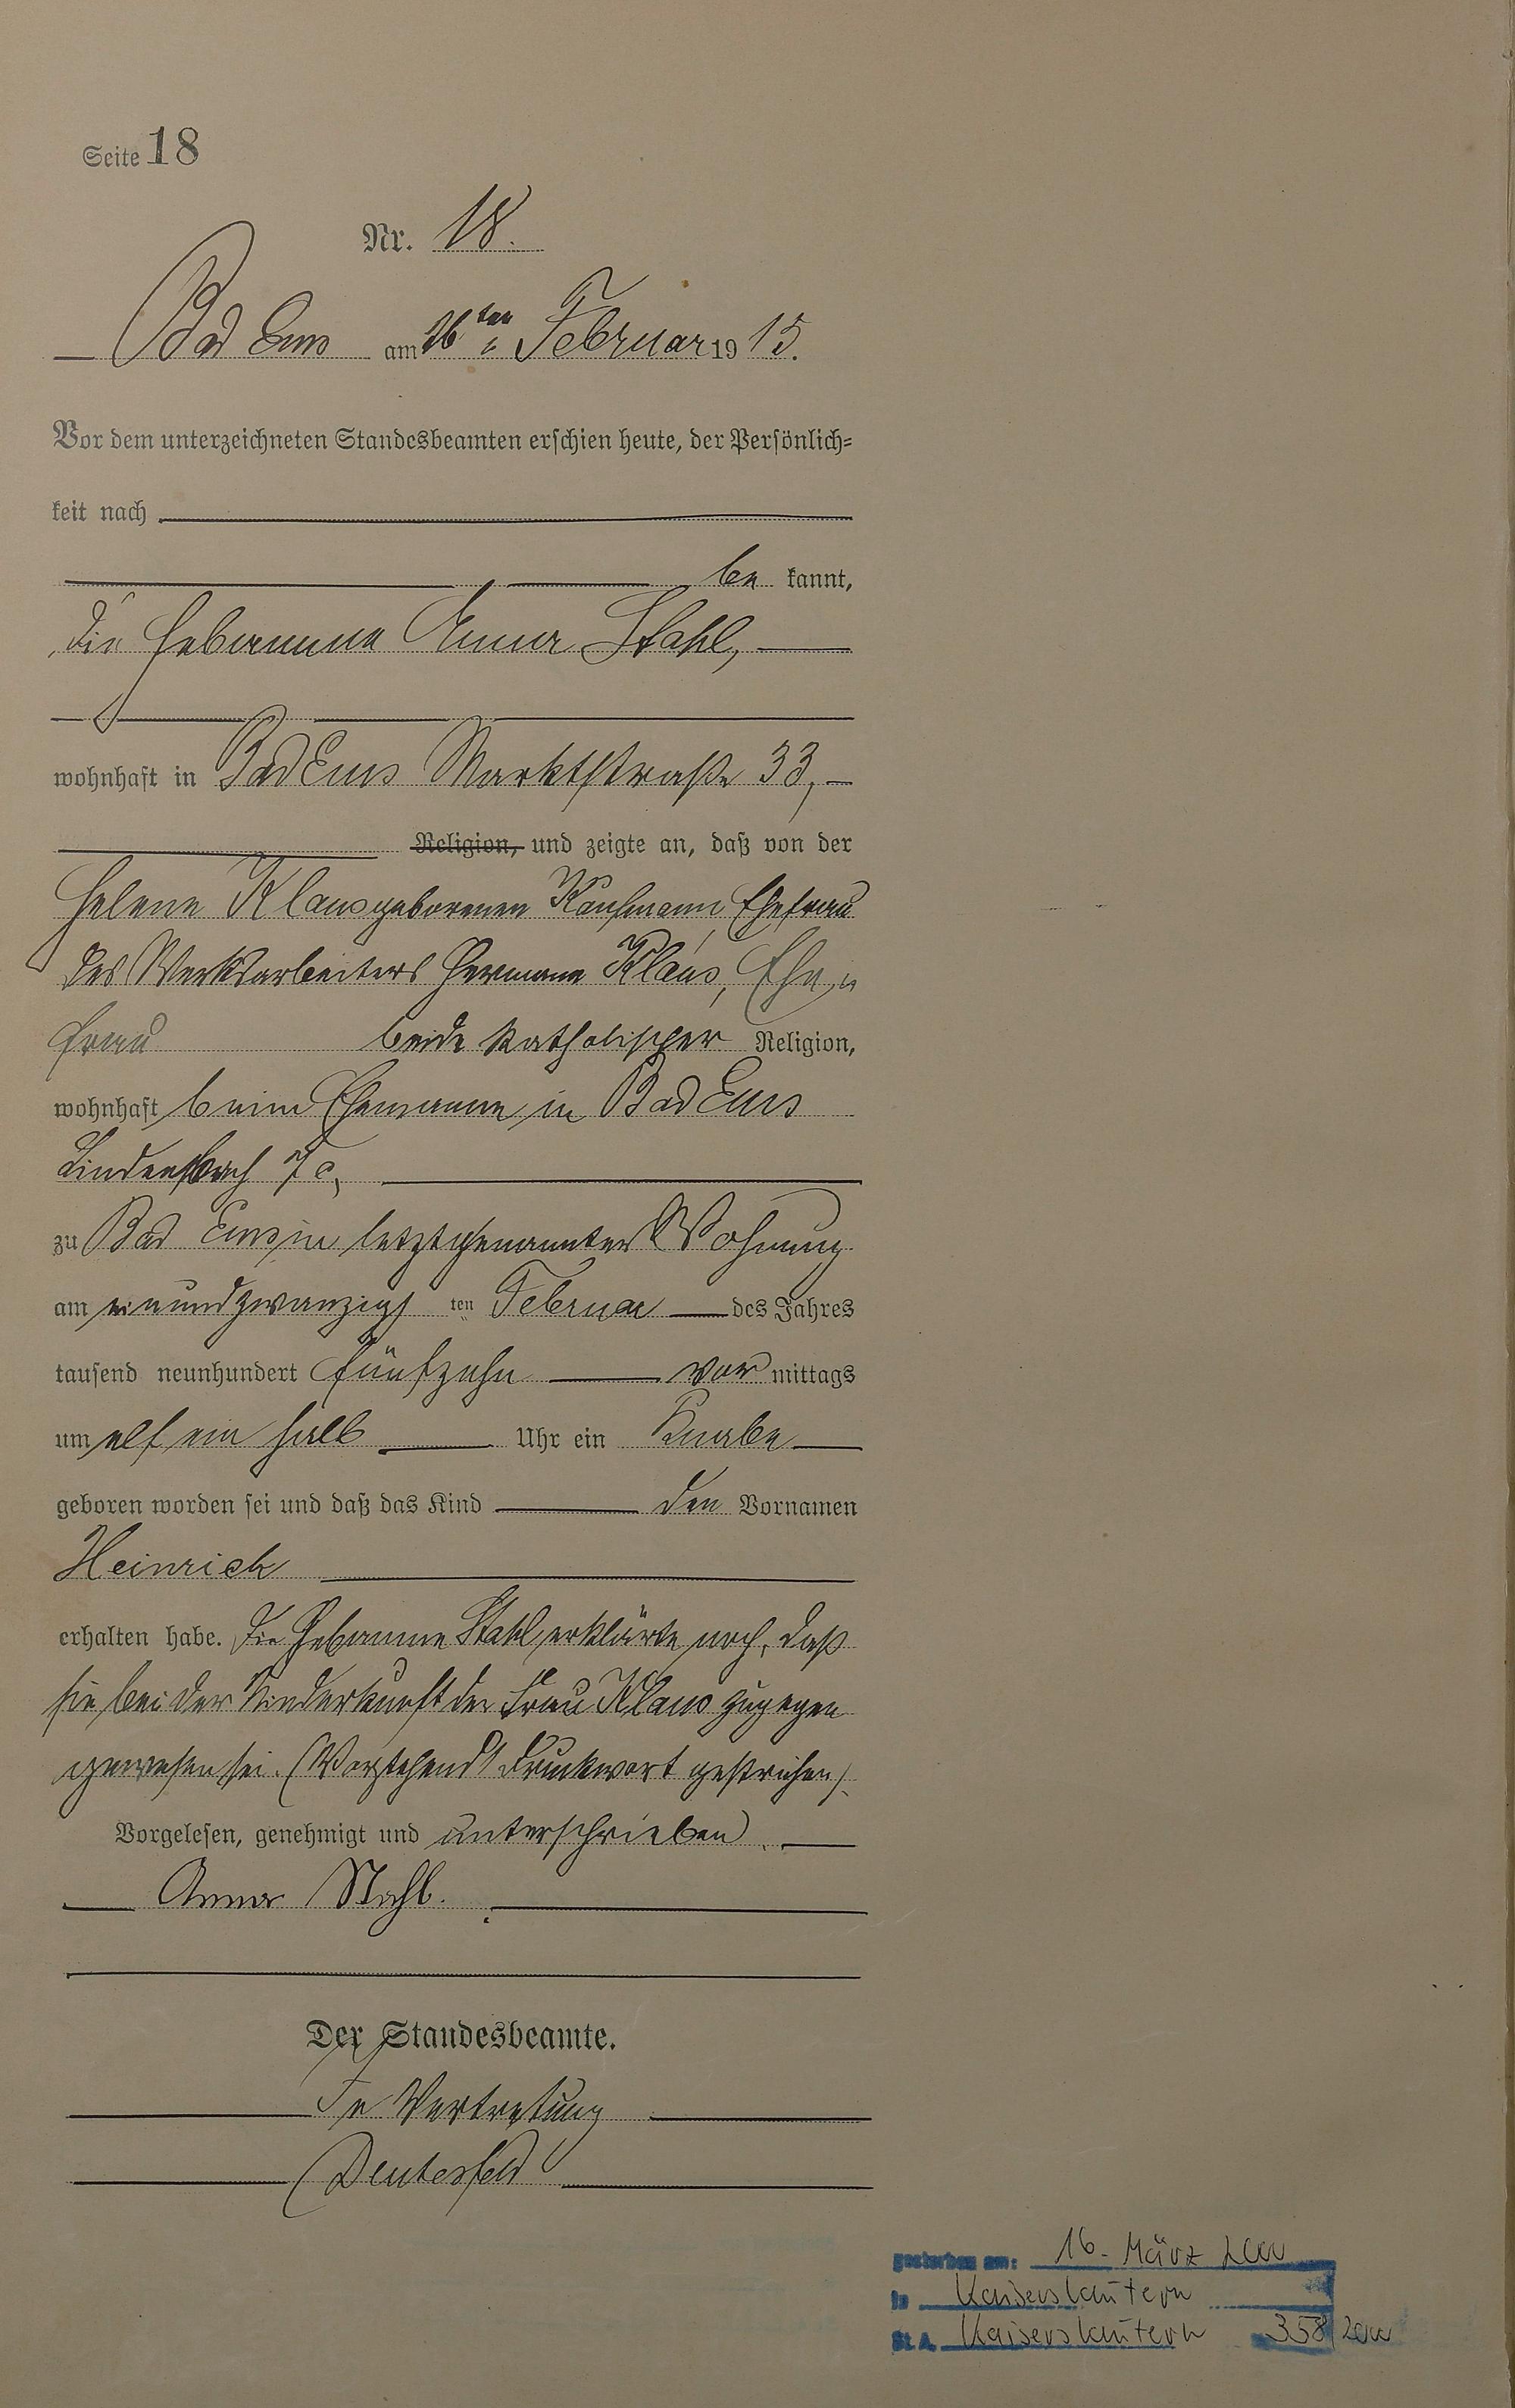 Seite 18
Nr. 18.
Bad Ems am 26ten Februar 1915.
Vor dem unterzeichneten Standesbeamten erschien heute, der Persönlich=
keit nach
be kannt,
die Hebamme Anna Stahl,
wohnhaft in Bad Ems Marktstraße 33,
Religion, und zeigte an, daß von der
Helene Klaus geborenen Kaufmann Ehefrau
des Werksarbeiters Hermann Klaus, Ehe=
frau beide katholischer Religion,
wohnhaft beim Ehemanne in Bad Ems
Lindenbach 7c,
zu Bad Ems in letztgenannter Wohnung
am einundzwanzigs ten Februar des Jahres
tausend neunhundert fünfzehn vor mittags
um elf ein halb Uhr ein Knabe
geboren worden sei und daß das Kind den Vornamen
Heinrich
erhalten habe. Die Hebamme Stahl erklärte noch, daß
sie bei der Niederkunft der Frau Klaus zugegen
gewesen sei. (Vorstehend 1 Druckwort gestrichen).
Vorgelesen, genehmigt und unterschrieben
Anna Stahl.
Der Standesbeamte.
In Vertretung
gestorben am: 16. März 2000
in Kaiserslautern
St. A. Kaiserslautern 358/2000